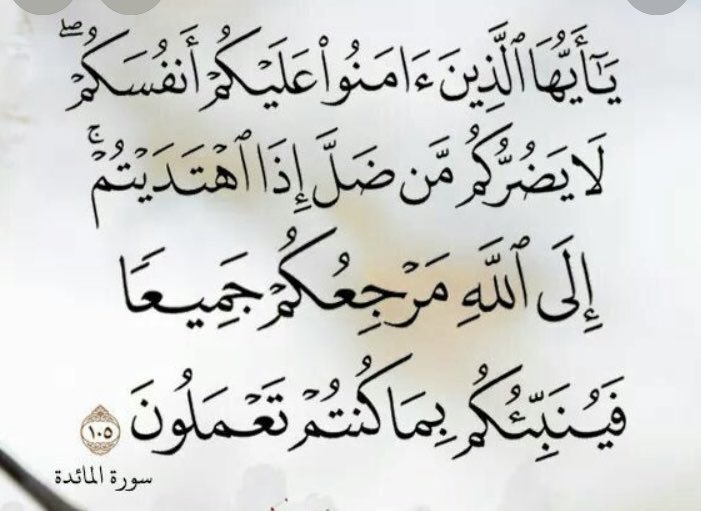 يَـٰٓأَيُّهَا ٱلَّذِينَ ءَامَنُوا۟ عَلَيْكُمْ أَنفُسَكُمْ ۖ
لَا يَضُرُّكُم مَّن ضَلَّ إِذَا ٱهْتَدَيْتُمْ ۚ
إِلَى ٱللَّهِ مَرْجِعُكُمْ جَمِيعًا
فَيُنَبِّئُكُم بِمَا كُنتُمْ تَعْمَلُونَ ١٠٥
سورة المائدة